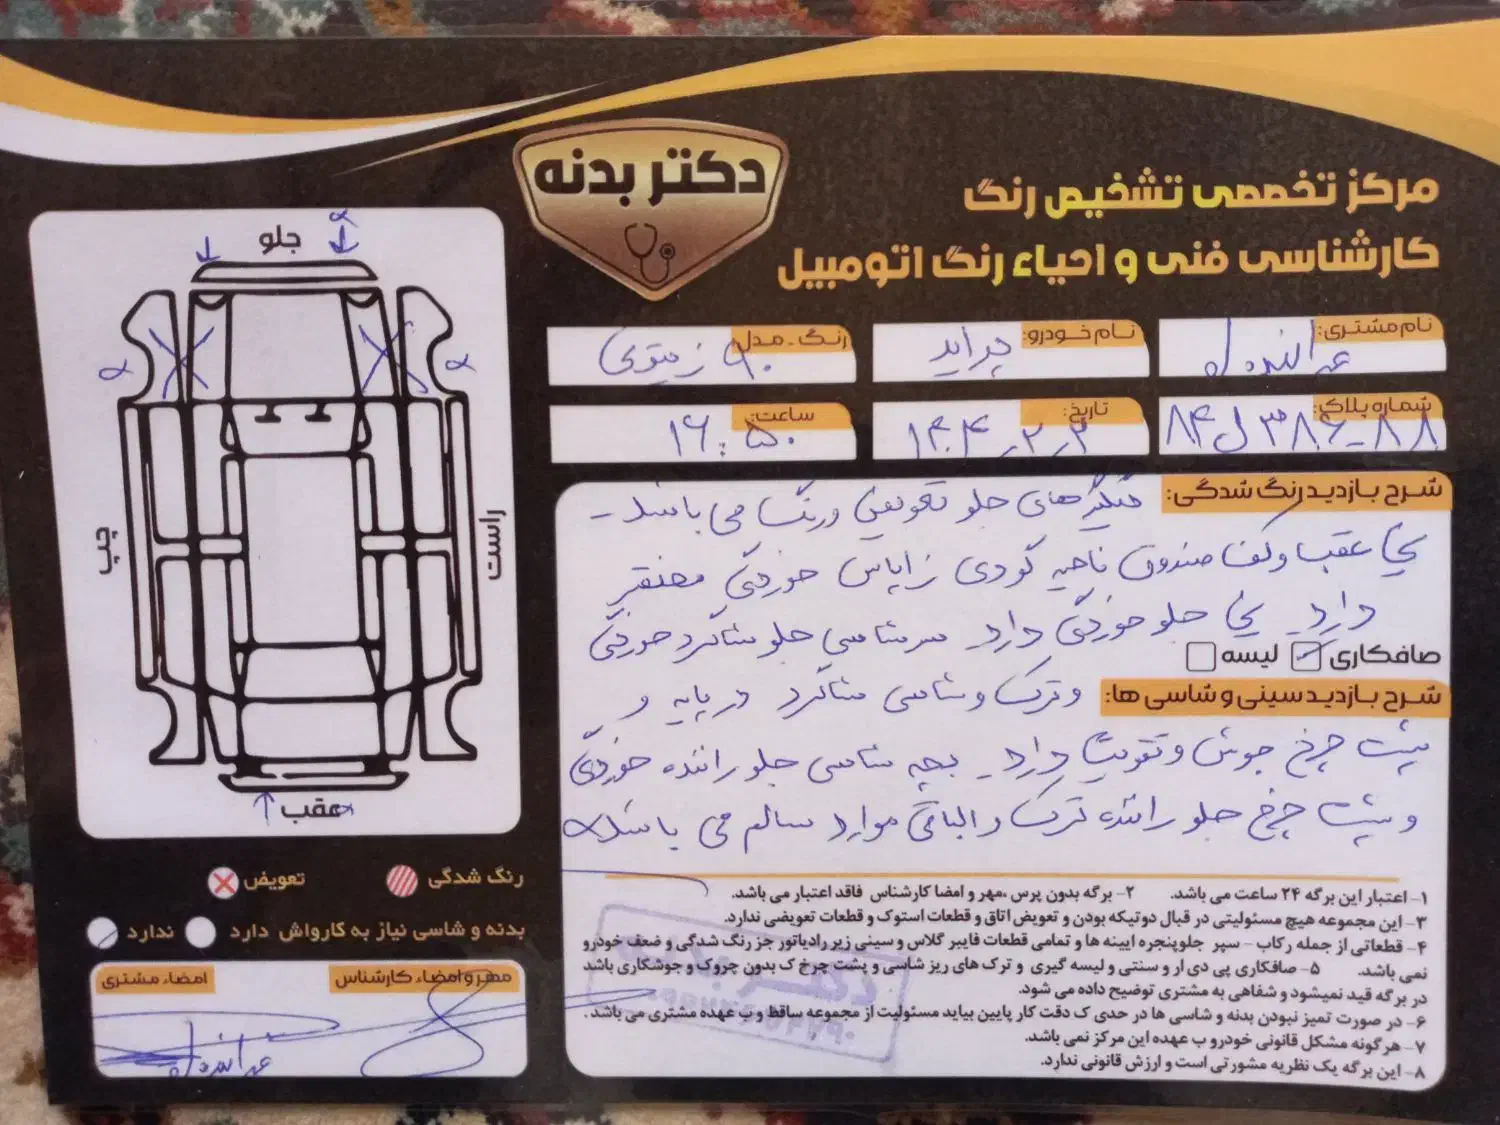 دکتر بدنه
مرکز تخصصی تشخیص رنگ
کارشناسی فنی و احیاء رنگ اتومبیل
نام مشتری:
نام خودرو: پراید
رنگ - مدل: ۹۰ زیتونی
شماره پلاک: ۸۴ ل ۳۸۶-۸۸
تاریخ: ۱۴۰۴-۲-۲
ساعت: ۱۶:۵۰
جلو
چپ
راست
عقب
شرح بازدید رنگ شدگی: گلگیرهای جلو تعویض و رنگ می باشد -
سینی عقب و کف صندوق ناحیه گودی زاپاس خوردگی مختصر
دارد سینی جلو خوردگی دارد سرشاسی جلو شاگرد خوردگی
صافکاری لیسه
شرح بازدید سینی و شاسی ها: و ترک و شاسی شاگرد در پایه و
پشت چرخ جوش و تقویت دارد - بچه شاسی جلو راننده خوردگی
و پشت چرخ جلو راننده ترک و الباقی موارد سالم می باشد
رنگ شدگی تعویض
بدنه و شاسی نیاز به کارواش دارد ندارد
مهر و امضاء کارشناس
امضاء مشتری
۱- اعتبار این برگه ۲۴ ساعت می باشد. ۲- برگه بدون پرس ،مهر و امضا کارشناس فاقد اعتبار می باشد.
۳- این مجموعه هیچ مسئولیتی در قبال دوتیکه بودن و تعویض اتاق و قطعات استوک و قطعات تعویضی ندارد.
۴- قطعاتی از جمله رکاب - سپر جلوپنجره ایینه ها و تمامی قطعات فایبر گلاس و سینی زیر رادیاتور جز رنگ شدگی و ضعف خودرو
نمی باشد. ۵- صافکاری پی دی ار و سنتی و لیسه گیری و ترک های ریز شاسی و پشت چرخ ک بدون چروک و جوشکاری باشد
در برگه قید نمیشود و شفاهی به مشتری توضیح داده می شود.
۶- در صورت تمیز نبودن بدنه و شاسی ها در حدی ک دقت کار پایین بیاید مسئولیت از مجموعه ساقط و ب عهده مشتری می باشد.
۷- هرگونه مشکل قانونی خودرو ب عهده این مرکز نمی باشد.
۸- این برگه یک نظریه مشورتی است و ارزش قانونی ندارد.